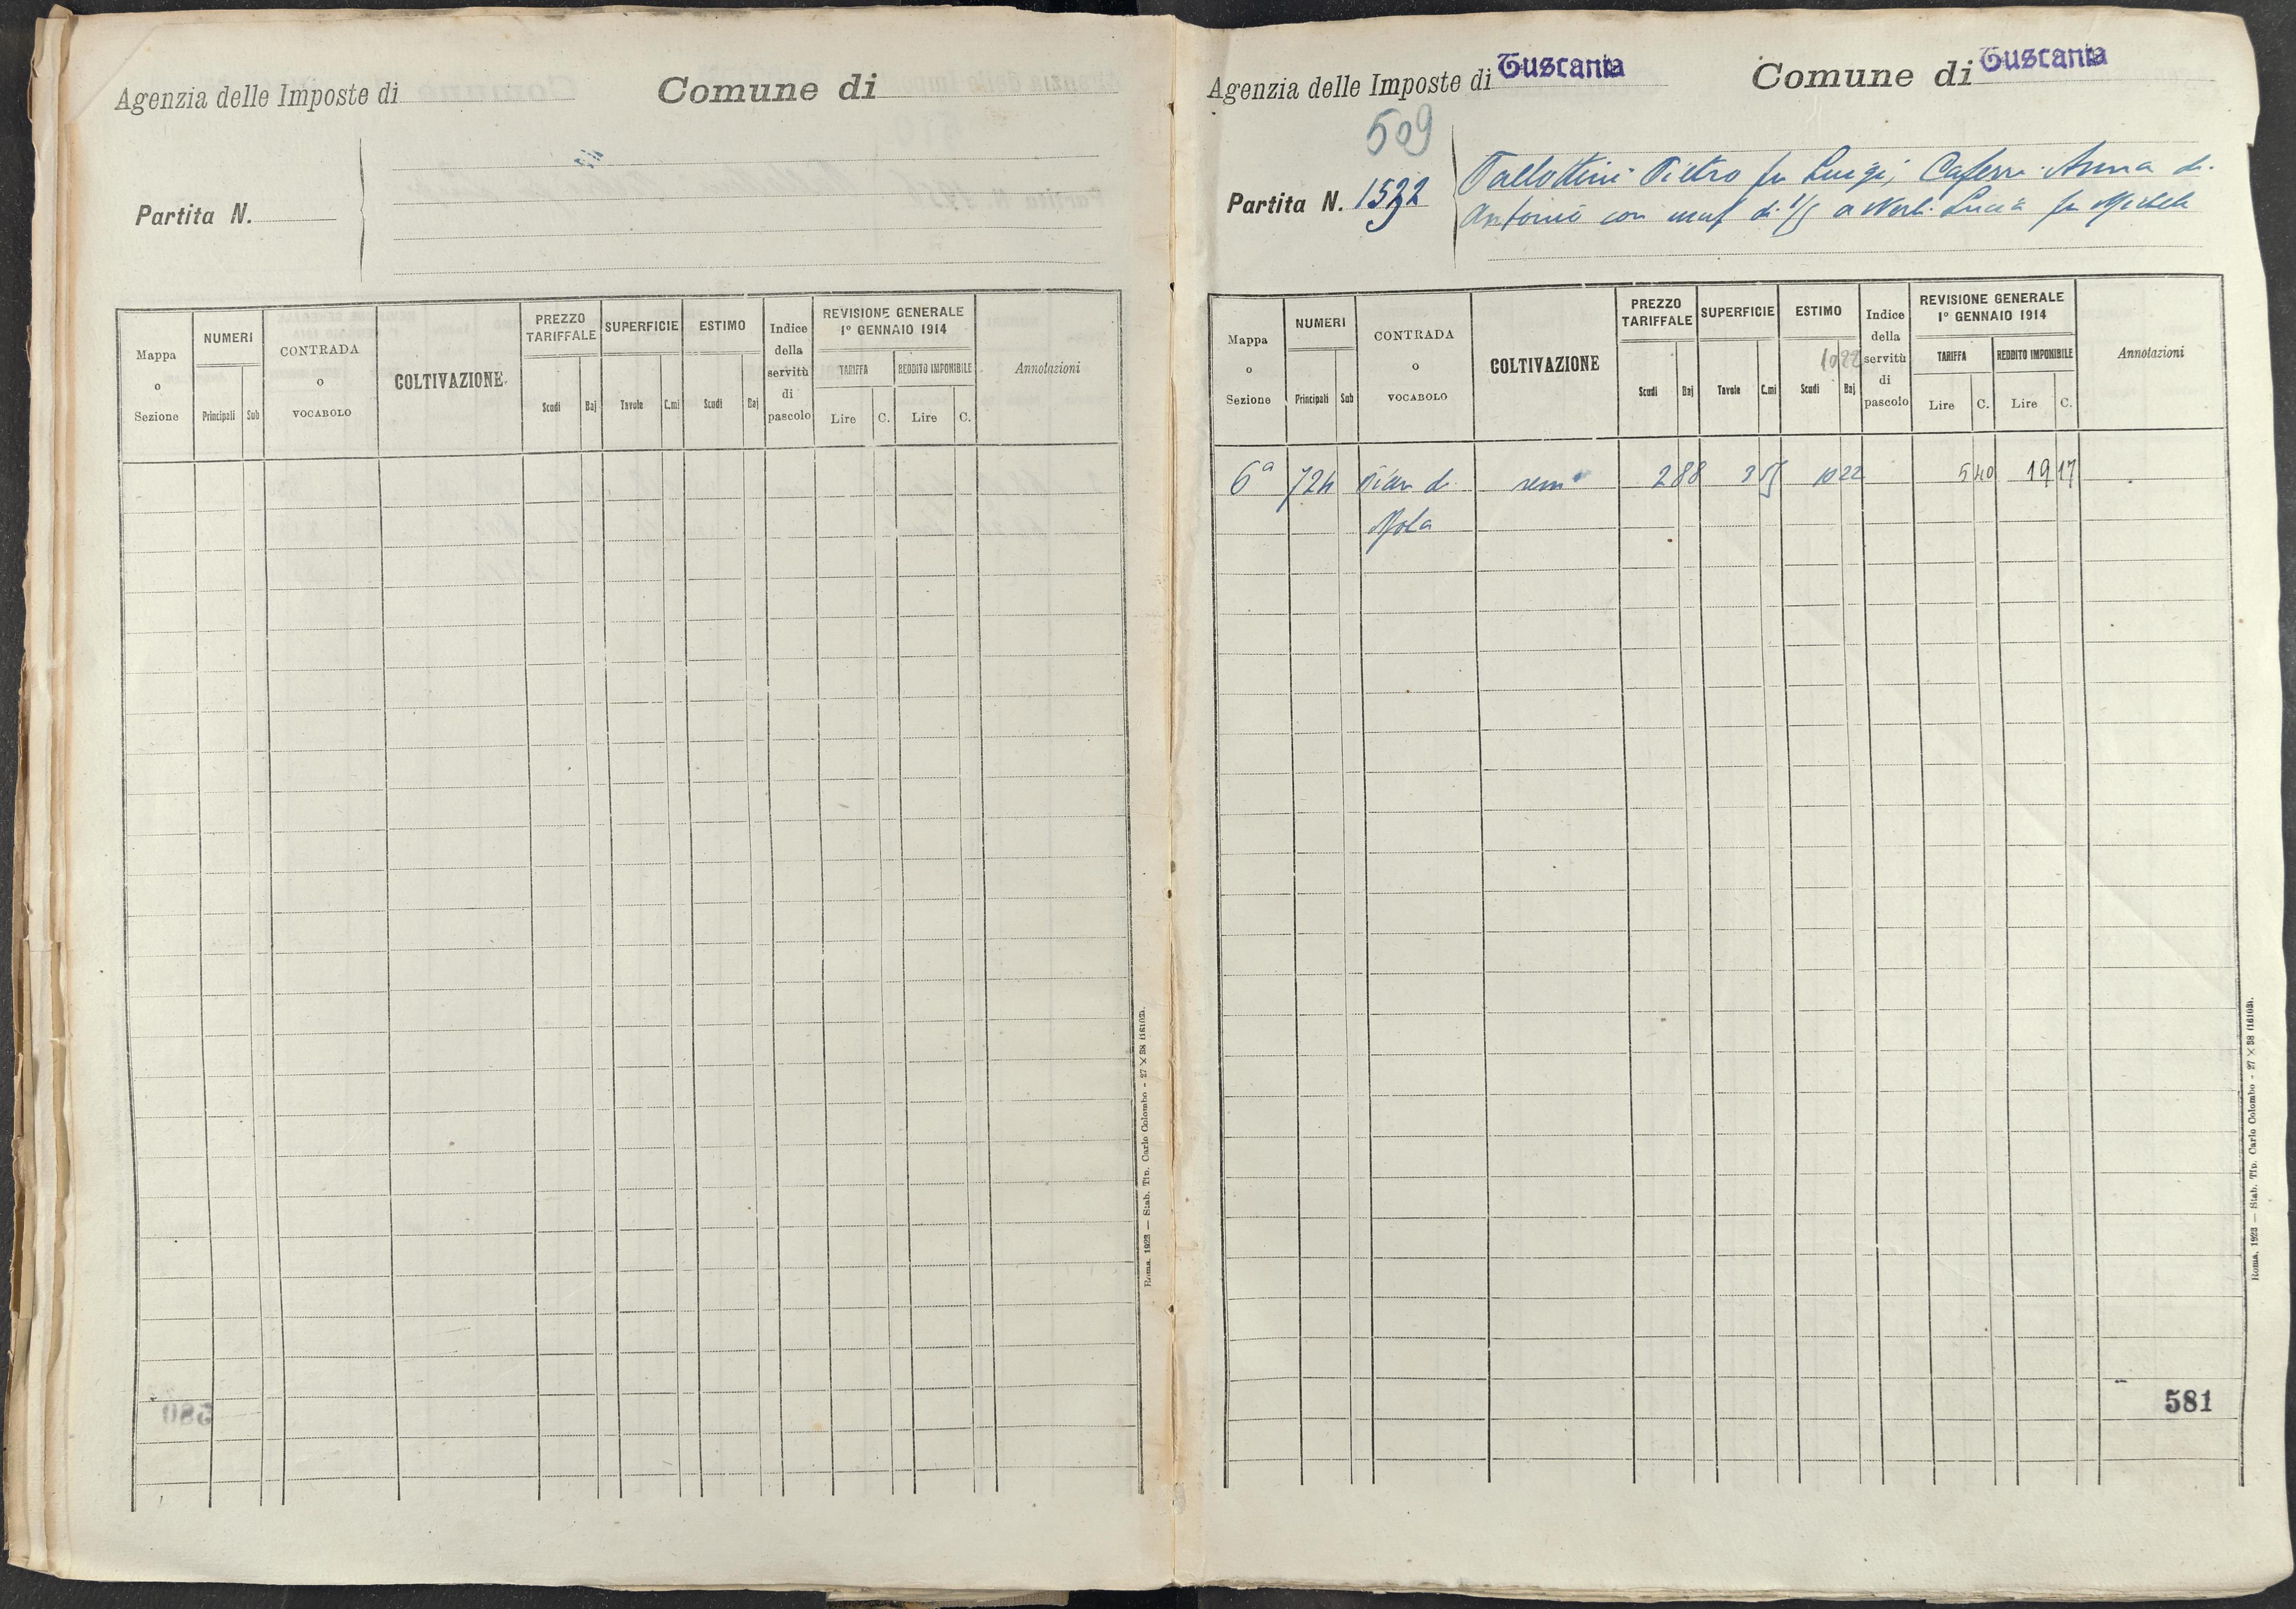 Agenzia delle Imposte di
Comune di
Partita N.
Mappa o Sezione
NUMERI
Principali
Sub
CONTRADA o VOCABOLO
COLTIVAZIONE
PREZZO TARIFFALE
Scudi
Baj
SUPERFICIE
Tavole
C.mi
ESTIMO
Scudi
Baj
Indice della servitù di pascolo
REVISIONE GENERALE
1° GENNAIO 1914
TARIFFA
Lire
C.
REDDITO IMPONIBILE
Lire
C.
Annotazioni
Roma, 1923 — Stab. Tip. Carlo Colombo - 27 × 38 (16103).
Agenzia delle Imposte di Tuscania
Comune di Tuscania
509
Partita N. 1532
Pallottini Pietro fu Luigi; Caferri Anna di
Antonio con usuf di 1/5 a Nerli Lucia fu Michele
Mappa o Sezione
NUMERI
Principali
Sub
CONTRADA o VOCABOLO
COLTIVAZIONE
PREZZO TARIFFALE
Scudi
Baj
SUPERFICIE
Tavole
C.mi
ESTIMO
1022
Scudi
Baj
Indice della servitù di pascolo
REVISIONE GENERALE
1° GENNAIO 1914
TARIFFA
Lire
C.
REDDITO IMPONIBILE
Lire
C.
Annotazioni
6a 724 Pian di sem 2 88 3 55 10 22 5 40 19 17
Mola
581
Roma, 1923 — Stab. Tip. Carlo Colombo - 27 × 38 (16103).